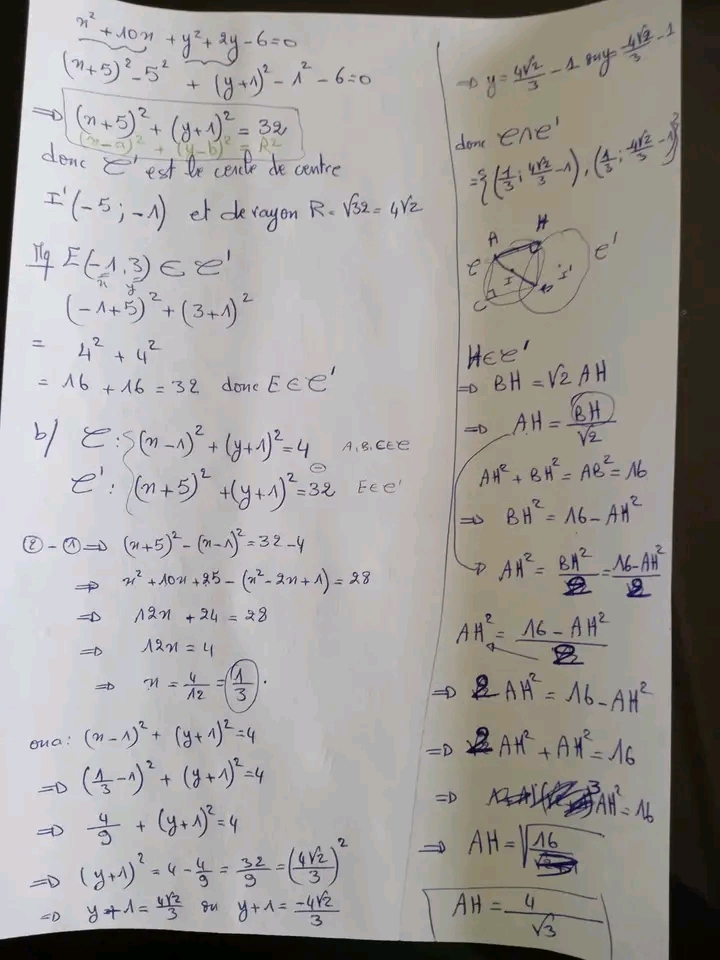 x² + 10x + y² + 2y - 6 = 0
(x+5)² - 5² + (y+1)² - 1² - 6 = 0
⇒ (x+5)² + (y+1)² = 32
(x-a)² + (y-b)² = R²
donc C' est le cercle de centre
I'(-5 ; -1) et de rayon R = √32 = 4√2
Mq E(-1, 3) ∈ C'
x y
(-1+5)² + (3+1)²
= 4² + 4²
= 16 + 16 = 32 donc E ∈ C'
b/ C : (x-1)² + (y+1)² = 4 A, B, C ∈ C
C' : (x+5)² + (y+1)² = 32 E ∈ C'
② - ① ⇒ (x+5)² - (x-1)² = 32 - 4
⇒ x² + 10x + 25 - (x² - 2x + 1) = 28
⇒ 12x + 24 = 28
⇒ 12x = 4
⇒ x = 4/12 = 1/3 .
ona : (x-1)² + (y+1)² = 4
⇒ (1/3 - 1)² + (y+1)² = 4
⇒ 4/9 + (y+1)² = 4
⇒ (y+1)² = 4 - 4/9 = 32/9 = (4√2/3)²
⇒ y+1 = 4√2/3 ou y+1 = -4√2/3
⇒ y = 4√2/3 - 1 ou y = -4√2/3 - 1
donc C ∩ C'
= {(1/3 ; 4√2/3 - 1), (1/3 ; -4√2/3 - 1)}
A H
C I I' C'
C B
H ∈ C'
⇒ BH = √2 AH
⇒ AH = BH/√2
AH² + BH² = AB² = 16
⇒ BH² = 16 - AH²
⇒ AH² = BH²/2 = (16 - AH²)/2
AH² = (16 - AH²)/2
⇒ 2 AH² = 16 - AH²
⇒ 2 AH² + AH² = 16
⇒ 3 AH² = 16
⇒ AH = √16
AH = 4/√3